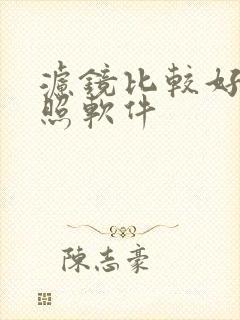 濾鏡比較好
照軟件
陳志豪